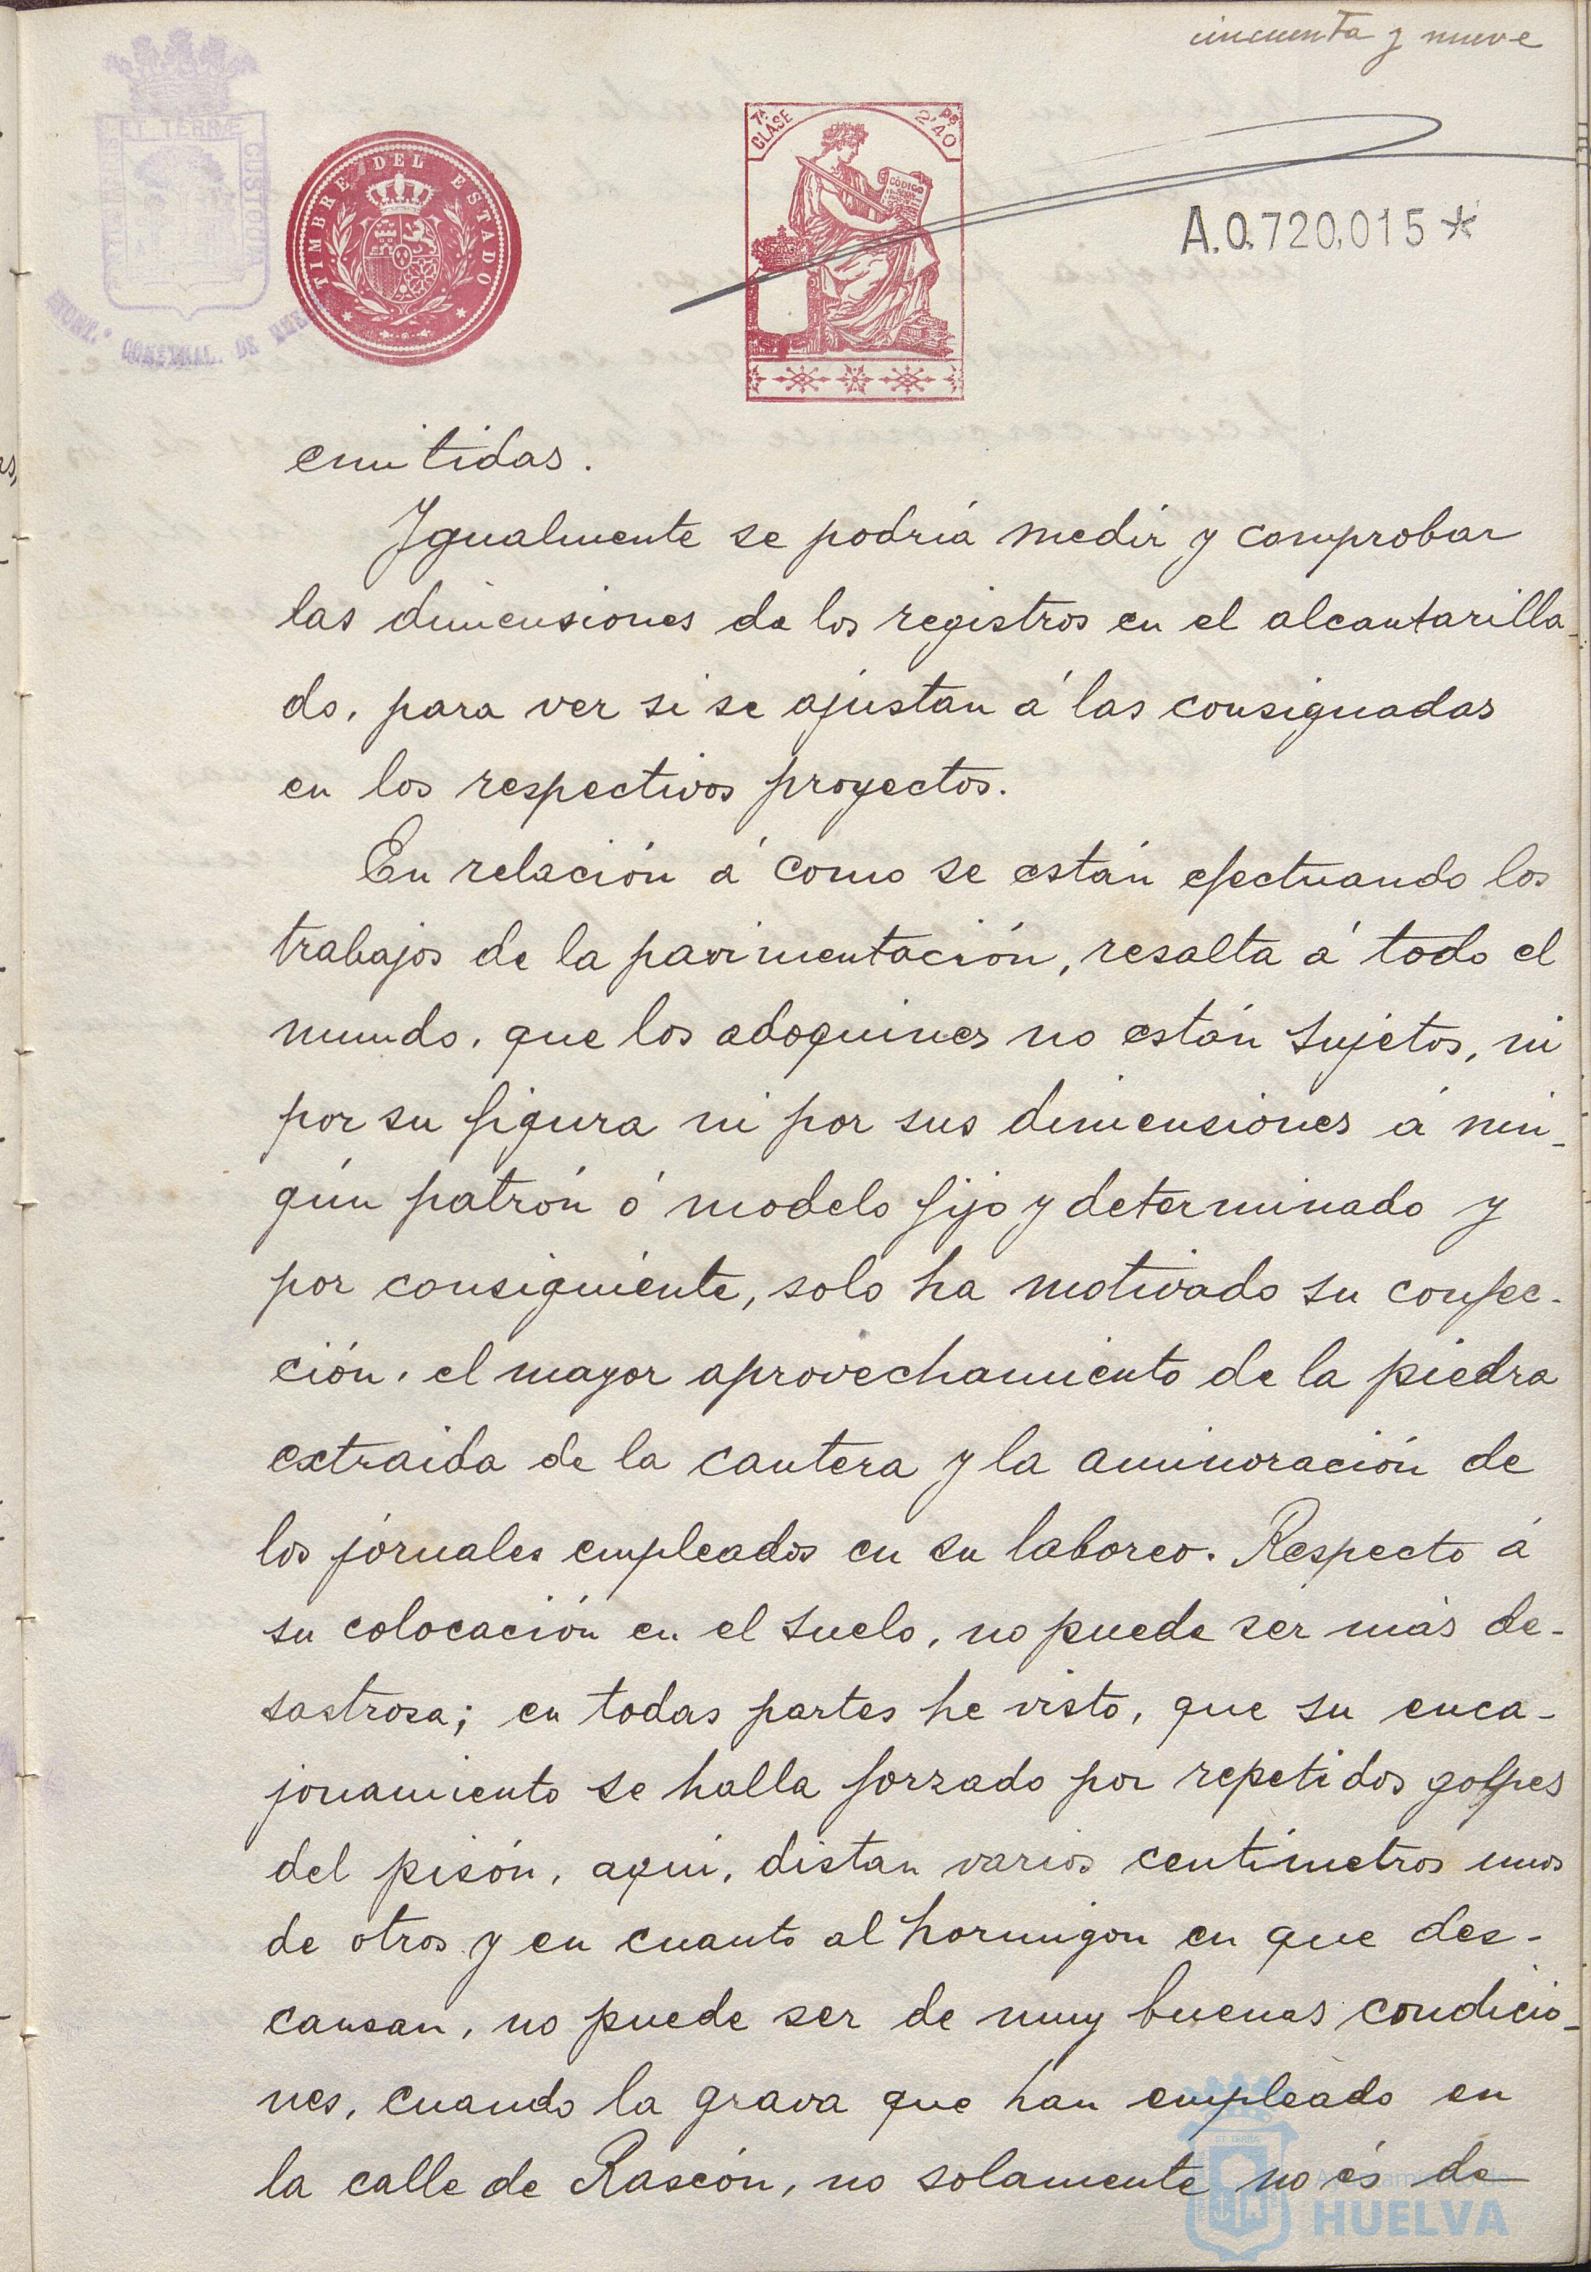 cincuenta y nueve
PORTUS MARIS ET TERRAE CUSTODIA
EXCMO. AYUNT.º CONSTNAL. DE HUELVA
TIMBRE DEL ESTADO
7ª CLASE
2'40 Ps
CÓDIGO
A.0.720,015*
emitidas.
Igualmente se podría medir y comprobar
las dimensiones de los registros en el alcantarilla-
do, para ver si se ajustan á las consignadas
en los respectivos proyectos.
En relación á como se están efectuando los
trabajos de la pavimentación, resalta á todo el
mundo, que los adoquines no están sujetos, ni
por su figura ni por sus dimensiones á nin-
gún patrón ó modelo fijo y determinado y
por consiguiente, solo ha motivado su confec-
ción, el mayor aprovechamiento de la piedra
extraida de la cantera y la aminoración de
los jornales empleados en su laboreo. Respecto á
su colocación en el suelo, no puede ser más de-
sastrosa; en todas partes he visto, que su enca-
jonamiento se halla forzado por repetidos golpes
del pisón, aquí, distan varios centímetros unos
de otros y en cuanto al hormigon en que des-
cansan, no puede ser de muy buenas condicio-
nes, cuando la grava que han empleado en
la calle de Rascón, no solamente no és de
Ayuntamiento de
HUELVA